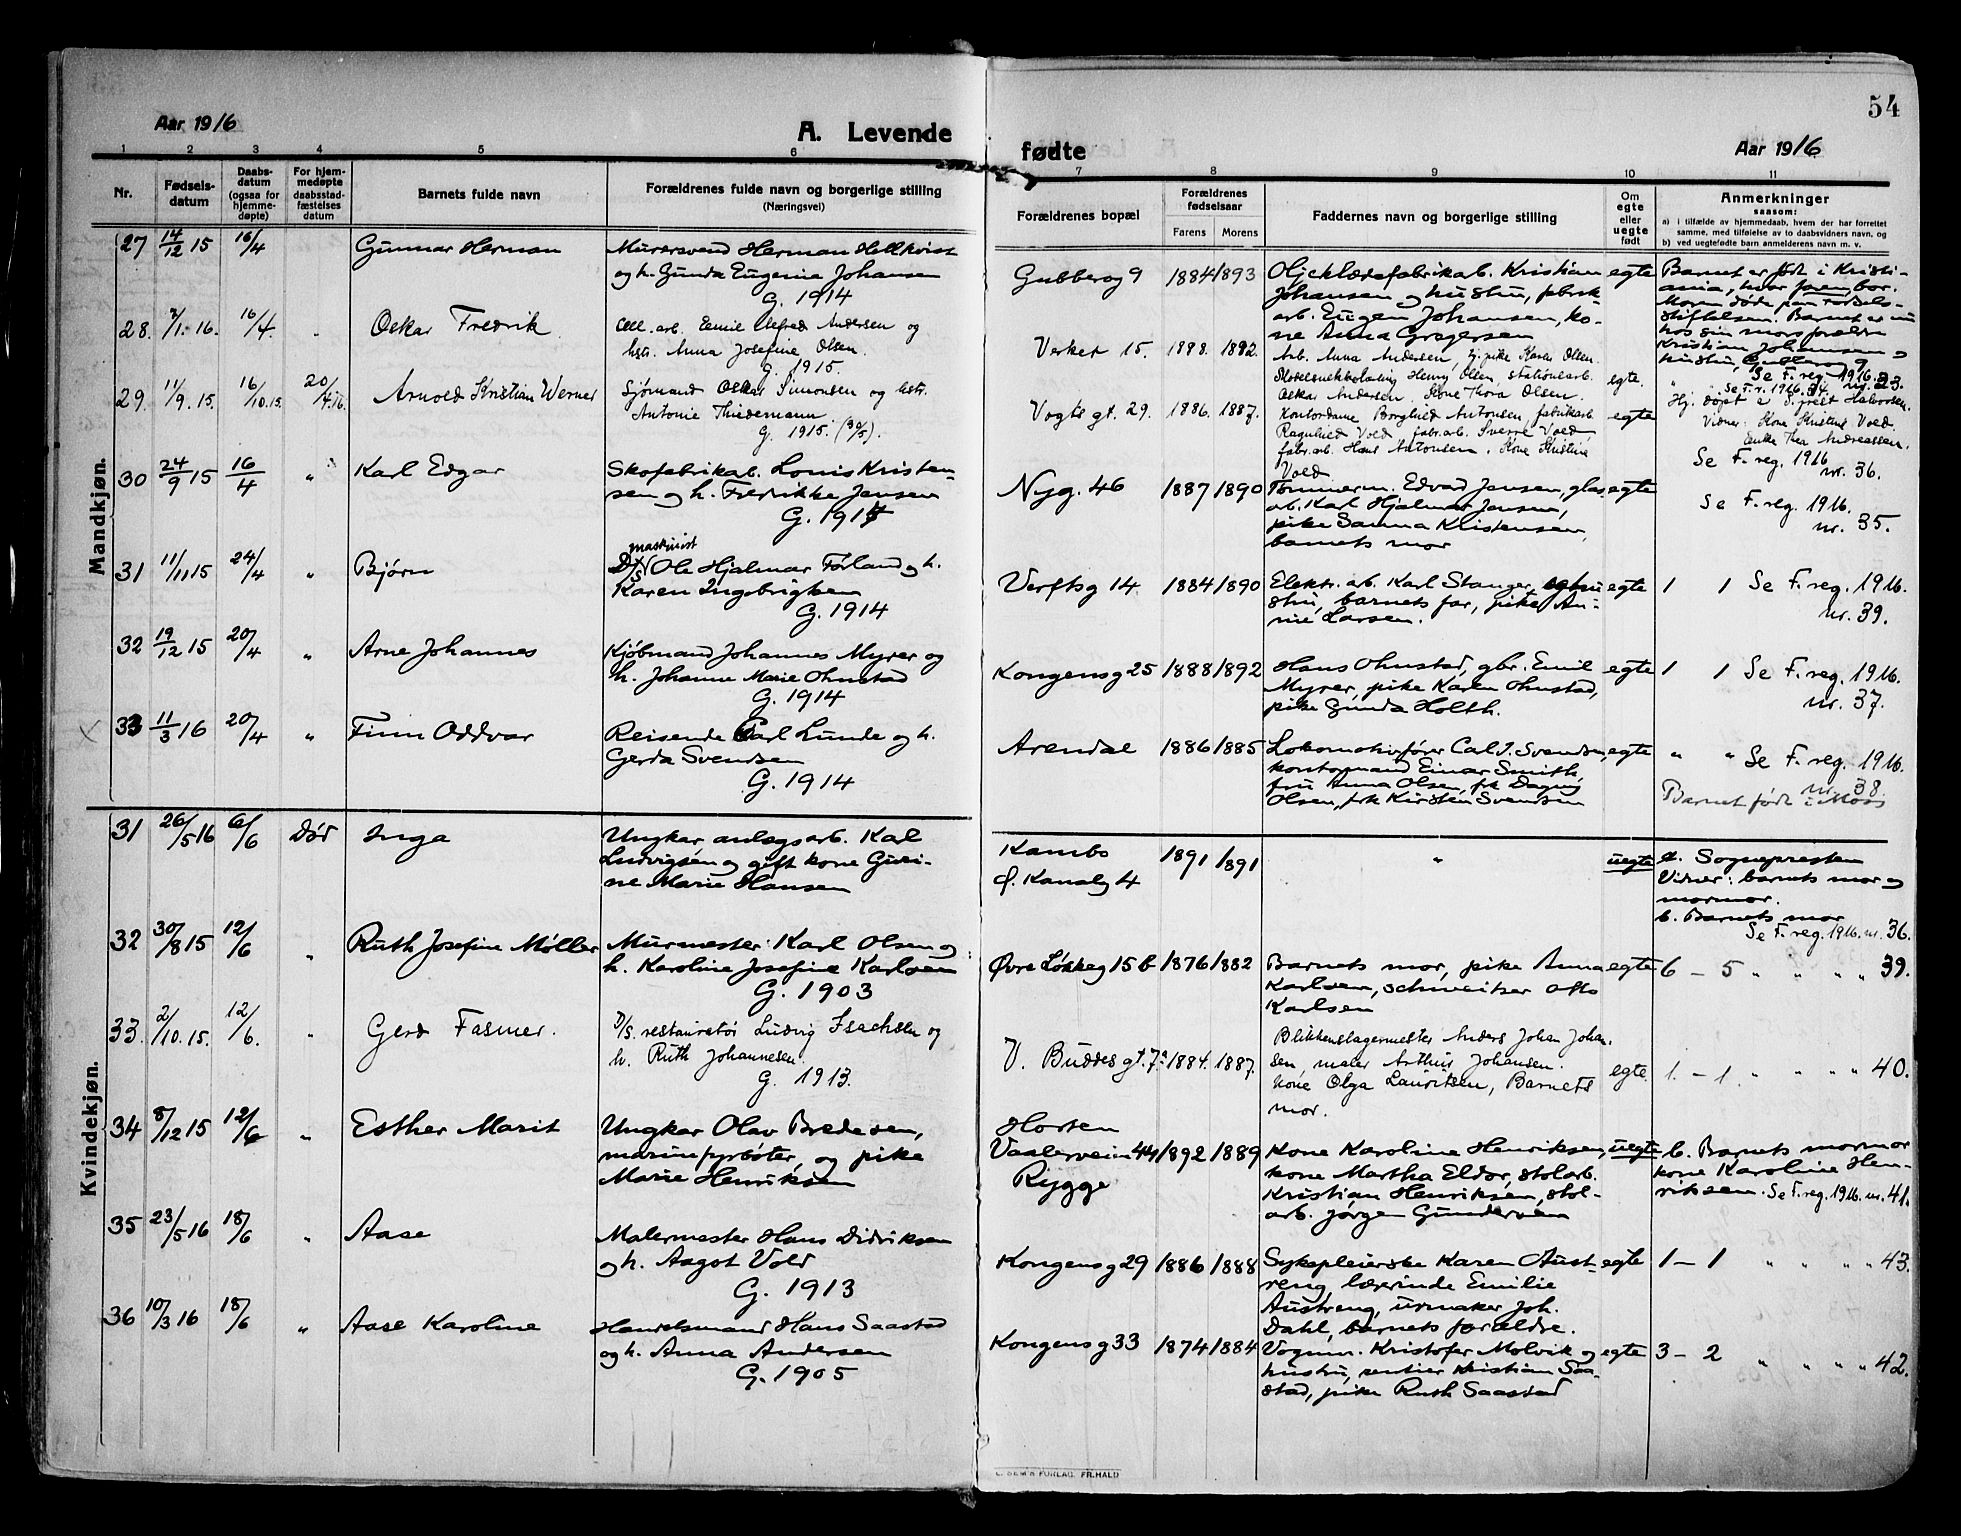 54
Aar 1916
A. Levende
fødte
Aar 1916
1 2 3 4 5 6 7 8 9 10 11
Nr.
Fødsels-
datum
Daabs-
datum
(ogsaa for
hjemme-
døpte)
For hjem-
medøpte
daabsstad-
fæstelses
datum
Barnets fulde navn
Forældrenes fulde navn og borgerlige stilling
(Næringsvei)
Forældrenes bopæl
Forældrenes
fødselsaar
Farens Morens
Faddernes navn og borgerlige stilling
Om
egte
eller
uegte
født
Anmerkninger
saasom:
a) i tilfælde av hjemmedaab, hvem der har forrettet
samme, med tilføielse av to daabsvidners navn, og
b) ved uegtefødte barn anmelderens navn m. v.
Mandkjøn.
27 14/12 15 16/4 Gunnar Herman
Murersvend Herman Hellkvist
og h. Gunda Eugenie Johansen
G. 1914
Gubberog 9 1884 1893
Oljeklædefabrikarb. Kristian
Johansen og hustru, fabrik-
arb. Eugen Johansen, ko-
ne Anna Gragersen
egte
Barnet er født i Kristi-
ania, hvor faren bor.
Moren døde paa Fødsels-
stiftelsen. Barnet er nu
hos sin mors forældre
Kristian Johansen og
hustru,
Se F. reg. 1916. nr. 23.
28. 7/1. 16. 16/4 Oskar Fredrik
Cell. arb. Emil Alfred Andersen og
hstr. Anna Josefine Olsen.
G. 1915.
Verket 15. 1888. 1892.
Arb. Anna Andersen, tj. pike Karen Olsen.
Henry Olsen, stationsarb.
Oskar Andersen. Kone Thora Olsen.
egte.
Se F. r. 1916. 34.
29. 11/9. 15. 16/10. 15. 20/4. 16. Arnold Kristian Werner
Sjømand Oskar Simonsen og hstr.
Antonie Thiedemann
G. 1915. (30/5).
Vogts gt. 29. 1886. 1887.
Kontordame Borghild Antonsen, fabrikarb.
Ragnhild Vold, fabr. arb. Sverre Vold,
fabr. arb. Hans Antonsen. Kone Kristine
Vold
egte
Hj. døpt i S. prest Halvorsen.
Vidner: Kone Kristine Vold.
Enke Thea Andreassen.
Se F. reg. 1916
nr. 36.
30 24/9 15 16/4 " Karl Edgar
Skofabrikarb. Louis Kristen-
sen og h. Fredrikke Jensen
G. 1914
Nyg. 46 1887 1890
Tømmerm. Edvard Jensen, glas-
arb. Karl Hjalmar Jensen,
pike Sanna Kristensen,
barnets mor
egte
Se F. reg. 1916.
nr. 35.
31 11/11 15 24/4 " Bjørn
maskinist
D/S Ole Hjalmar Førland og h.
Karen Ingebrigtsen
G. 1914
Verftsg 14 1884 1890
Elektr. arb. Karl Stanger, og hu-
stru, barnets far, pike An-
nie Larsen.
egte 1 1 Se F. reg. 1916.
nr. 39.
32 19/12 15 20/4 " Arne Johannes
Kjøbmand Johannes Myrer og
h. Johanne Marie Ohnstad
G. 1914
Kongensg 25 1888 1892
Hans Ohnstad, gbr. Emil
Myrer, pike Karen Ohnstad,
pike Gunda Holth.
egte 1 1 Se F. reg. 1916.
nr. 37.
33 11/3 16 20/4 " Finn Oddvar
Reisende Carl Lunde og h.
Gerda Svendsen
G. 1914
Arendal 1886 1885
Lokomotivfører Carl J. Svendsen,
kontormand Einar Smith,
fru Anna Olsen, frk Dagny
Olsen, frk Kirsten Svendsen
egte " " Se F. reg. 1916.
nr. 38.
Barnet født i Moss
Kvindekjøn.
31 26/5 16 6/6 Død Inga
Ungkar, anlægsarb. Karl
Ludvigsen og gift kone Guri-
ne Marie Hansen
Kambo
f. Kanalg 4 1891 1891
" uegte
a. Sognepresten
Vidner: barnets mor og
mormor.
b. Barnets mor
Se F. reg. 1916. nr. 36.
32 30/8 15 12/6 " Ruth Josefine Møller
Murmester Karl Olsen og
h. Karoline Josefine Karlsen
G. 1903
Øvre Løkkeg 15 b 1876 1882
Barnets mor, pike Anna
Karlsen, schweitser Otto
Karlsen
egte 6 – 5 " " " 39.
33. 2/10. 15. 12/6. " Gerd Fasmer.
D/S. restauratør Ludvig Isachsen og
h. Ruth Johannesen.
G. 1913.
V. Buddes gt. 7. 1884. 1887.
Blikkenslagermester Anders Johan Johan-
sen, maler Arthur Johansen.
kone Olga Lauritsen, Barnets
mor.
egte. 1. – 1. " " " 40.
34 8/12 15 12/6 " Esther Marit
Ungkar Olav Bredesen,
marinefyrbøter, og pike
Marie Henriksen
Horten
Vaalerveien 44
Rygge 1892 1889
Kone Karoline Henriksen,
kone Martha Eldor, stolarb.
Kristian Henriksen, stol-
arb. Jørgen Gundersen
uegte
b. Barnets mormor
kone Karoline Hen-
riksen. Se F. reg. 1916. nr. 41.
35 23/5 16 18/6 " Aase
Malermester Hans Didriksen
og h. Aagot Vold
G. 1913
Kongensg 29 1886 1888
Sykepleierske Karen Aust-
reng, lærerinde Emilie
Austreng, urmaker Joh.
Dahl, barnets forældre.
egte 1 – 1 " " " 43.
36 10/3 16 18/6 " Aase Karoline
Handelsmand Hans Saastad
og h. Anna Andersen
G. 1905
Kongensg 33 1874 1884
Vognm. Kristofer Molvik og
hustru, rentier Kristian Saa-
stad, pike Ruth Saastad
egte 3 – 2 " " " 42.
SEM'S FORLAG, FR.HALD